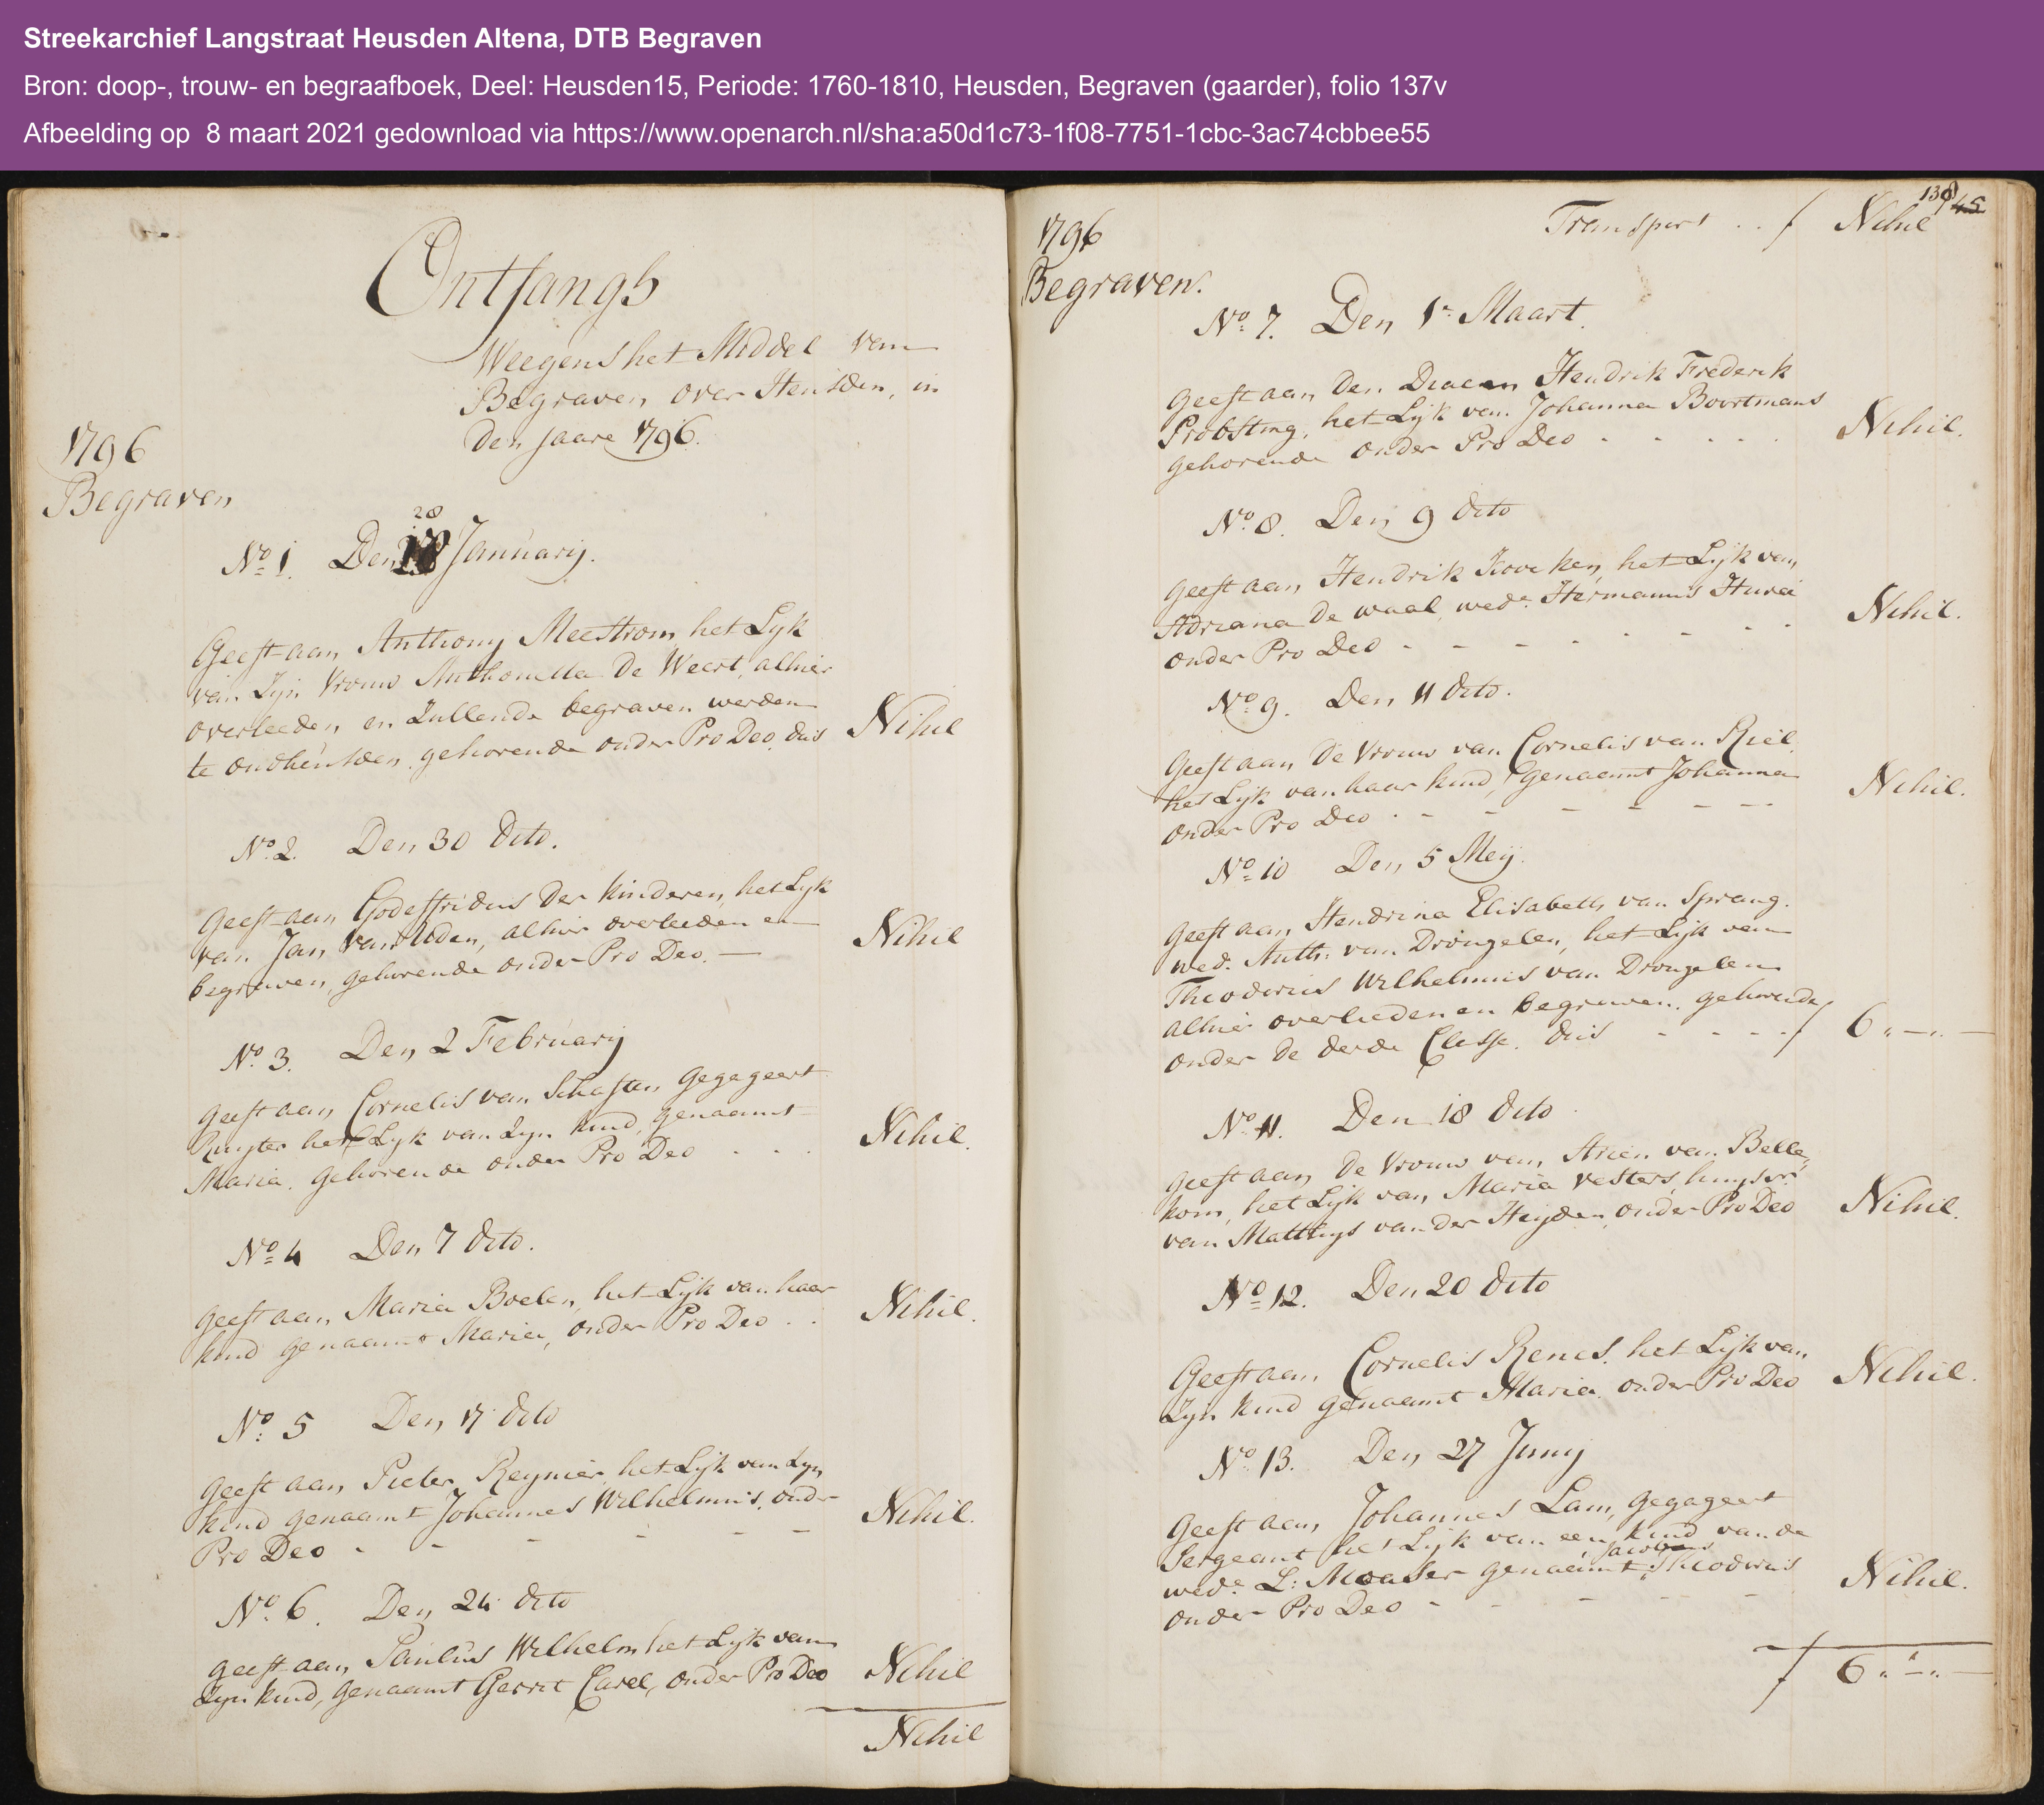 Streekarchief Langstraat Heusden Altena, DTB Begraven
Bron: doop-, trouw- en begraafboek, Deel: Heusden15, Periode: 1760-1810, Heusden, Begraven (gaarder), folio 137v
Afbeelding op  8 maart 2021 gedownload via https://www.openarch.nl/sha:a50d1c73-1f08-7751-1cbc-3ac74cbbee55
Ontfangs
Weegens het Middel van
Begraven over Heusden, in
den jaare 1796.
1796
Begraven
28
No 1. Den 18 January.
Geeft aan Anthony Meestrom het Lyk
van Zyn Vrouw Anthonetta De Weert, alhier
overleeden, en Zullende begraven werden
te oudheusden, gehorende onder Pro Deo, dus Nihil
No 2. Den 30 dito.
Geeft aan Godeffridus der kinderen, het Lyk
van Jan van Uden, alhier overleeden en
begraven, gehorende onder Pro Deo. Nihil
No 3. Den 2 February
Geeft aan Cornelis van Schaften Gegageert
Ruyter het Lyk van Zyn kind, genaamt
Maria, gehorende onder Pro Deo Nihil.
No 4 Den 7 dito.
Geeft aan Maria Boelen, het Lyk van haar
kind genaamt Maria, onder Pro Deo Nihil.
No 5 Den 17 dito
Geeft aan Pieter Reynier het Lyk van Zyn
kind genaamt Johannes Wilhelmus, onder
Pro Deo Nihil.
No 6. Den 24 dito
Geeft aan Paulus Wilhelm het Lyk van
Zyn kind, genaamt Gerrit Carel, onder Pro Deo Nihil
Nihil
138 45
1796 Transport . . f Nihil
Begraven.
No 7. Den 1e Maart.
Geeft aan den Diacen Hendrik Frederik
Probsting, het Lyk van Johanna Boortmans
gehorende onder Pro Deo Nihil.
No 8. Den 9 dito
Geeft aan Hendrik Koveken, het Lyk van
Adriana De waal, wede Hermanus
onder Pro Deo Nihil.
No 9. Den 11 dito.
Geeft aan De Vrouw van Cornelis van Riel,
het Lyk van haar kind, genaamt Johanna
onder Pro Deo Nihil.
No 10 Den 5 Mey.
Geeft aan Hendrina Elisabeth van Sprang.
wed. Anth: van Drongelen, het Lyk van
Theodorus Wilhelmus van Drongelen
alhier overleeden en begraven, gehorende
onder de derde Classe, dus f 6 „ — „ —
No 11. Den 18 dito
Geeft aan De Vrouw van Arien van Belle,
kom, het Lyk van Maria Vesters, huysvr
van Matthys van der Heyden, onder Pro Deo Nihil.
No 12. Den 20 dito
Geeft aan Cornelis Renes, het Lyk van
Zyn kind genaamt Maria, onder Pro Deo Nihil.
No 13. Den 27 Juny
Geeft aan Johannes Lam, gegageert
Sergeant het Lyk van een kind van de
Jacobus
wede L: genaamt Theodorus
onder Pro Deo Nihil.
f 6 „ — „ —